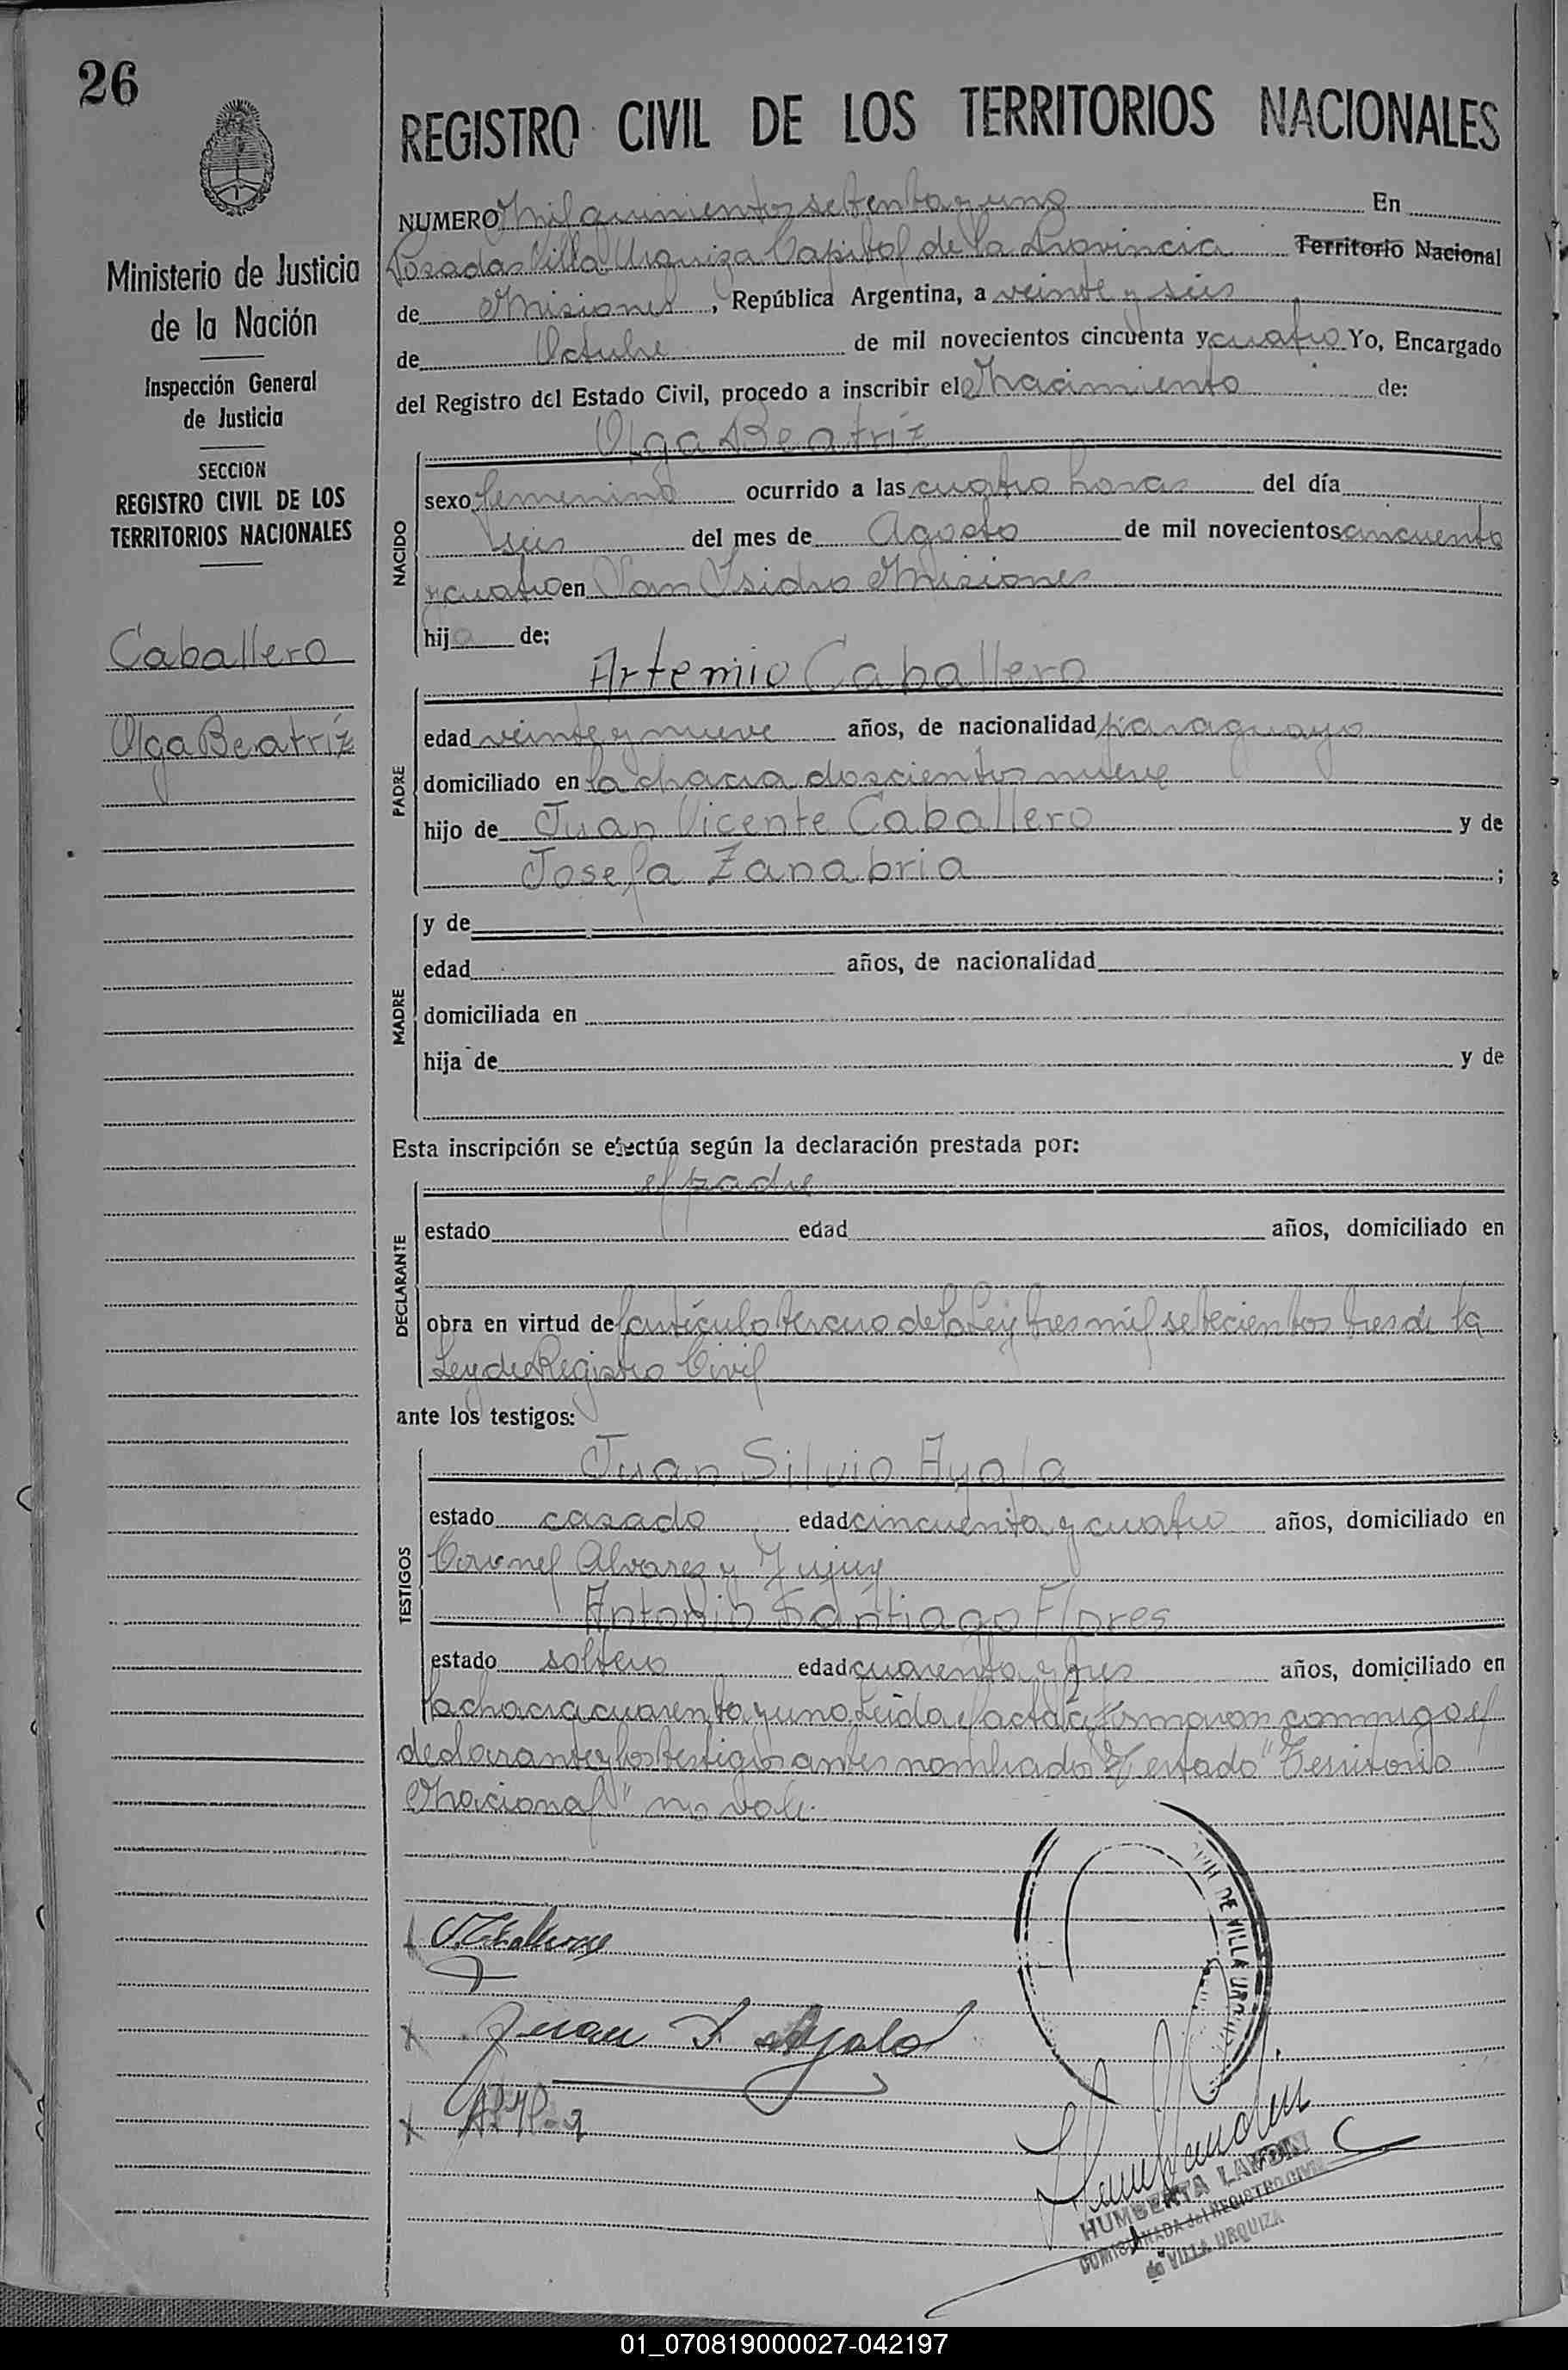 26
Ministerio de Justicia
de la Nación
Inspección General
de Justicia
SECCION
REGISTRO CIVIL DE LOS
TERRITORIOS NACIONALES
Caballero
Olga Beatríz
REGISTRO CIVIL DE LOS TERRITORIOS NACIONALES
NUMERO Mil quinientos setenta y uno En
Posadas Villa Urquiza Capital de la Provincia Territorio Nacional
de Misiones, República Argentina, a veinte y seis
de Octubre de mil novecientos cincuenta y cuatro Yo, Encargado
del Registro del Estado Civil, procedo a inscribir el Nacimiento de:
Olga Beatríz
NACIDO
sexo femenino ocurrido a las cuatro horas del día
seis del mes de Agosto de mil novecientos cincuenta
y cuatro en San Isidro Misiones
hija de:
Artemio Caballero
PADRE
edad veinte y nueve años, de nacionalidad paraguayo
domiciliado en la chacra doscientos nueve
hijo de Juan Vicente Caballero y de
Josefa Zanabria ;
MADRE
y de
edad años, de nacionalidad
domiciliada en
hija de y de
Esta inscripción se efectúa según la declaración prestada por:
el padre
DECLARANTE
estado edad años, domiciliado en
obra en virtud del artículo tercero de la Ley tres mil setecientos tres de la
Ley de Registro Civil
ante los testigos:
Juan Silvio Ayala
TESTIGOS
estado casado edad cincuenta y cuatro años, domiciliado en
Coronel Alvarez y Jujuy
Antonio Santiago Flores
estado soltero edad cuarenta y tres años, domiciliado en
la chacra cuarenta y uno Leída el acta la firmaron conmigo el
declarante y los testigos antes nombrados Testado "Territorio
Nacional" no vale.
Juan S Ayala
DE VILLA URQUIZA
HUMBERTA LANDI
COMISIONADA del REGISTRO CIVIL
de VILLA URQUIZA
01_070819000027-042197